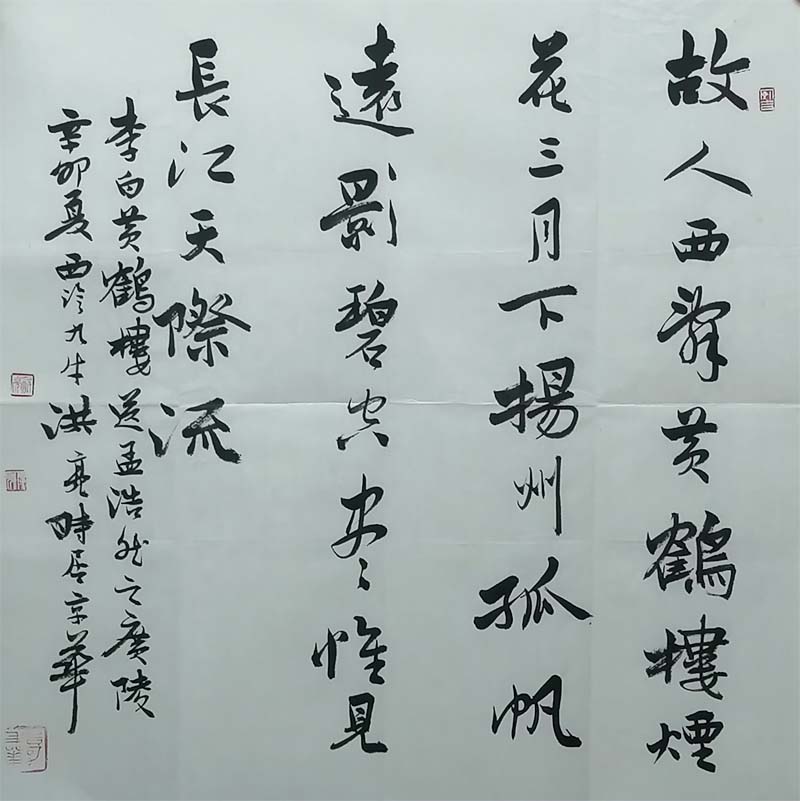 故人西辭黄鶴樓煙
花三月下揚州孤帆
遠影碧空盡惟見
長江天際流
李白黄鶴樓送孟浩然之廣陵
辛卯夏西泠九牛洪亮時居京華